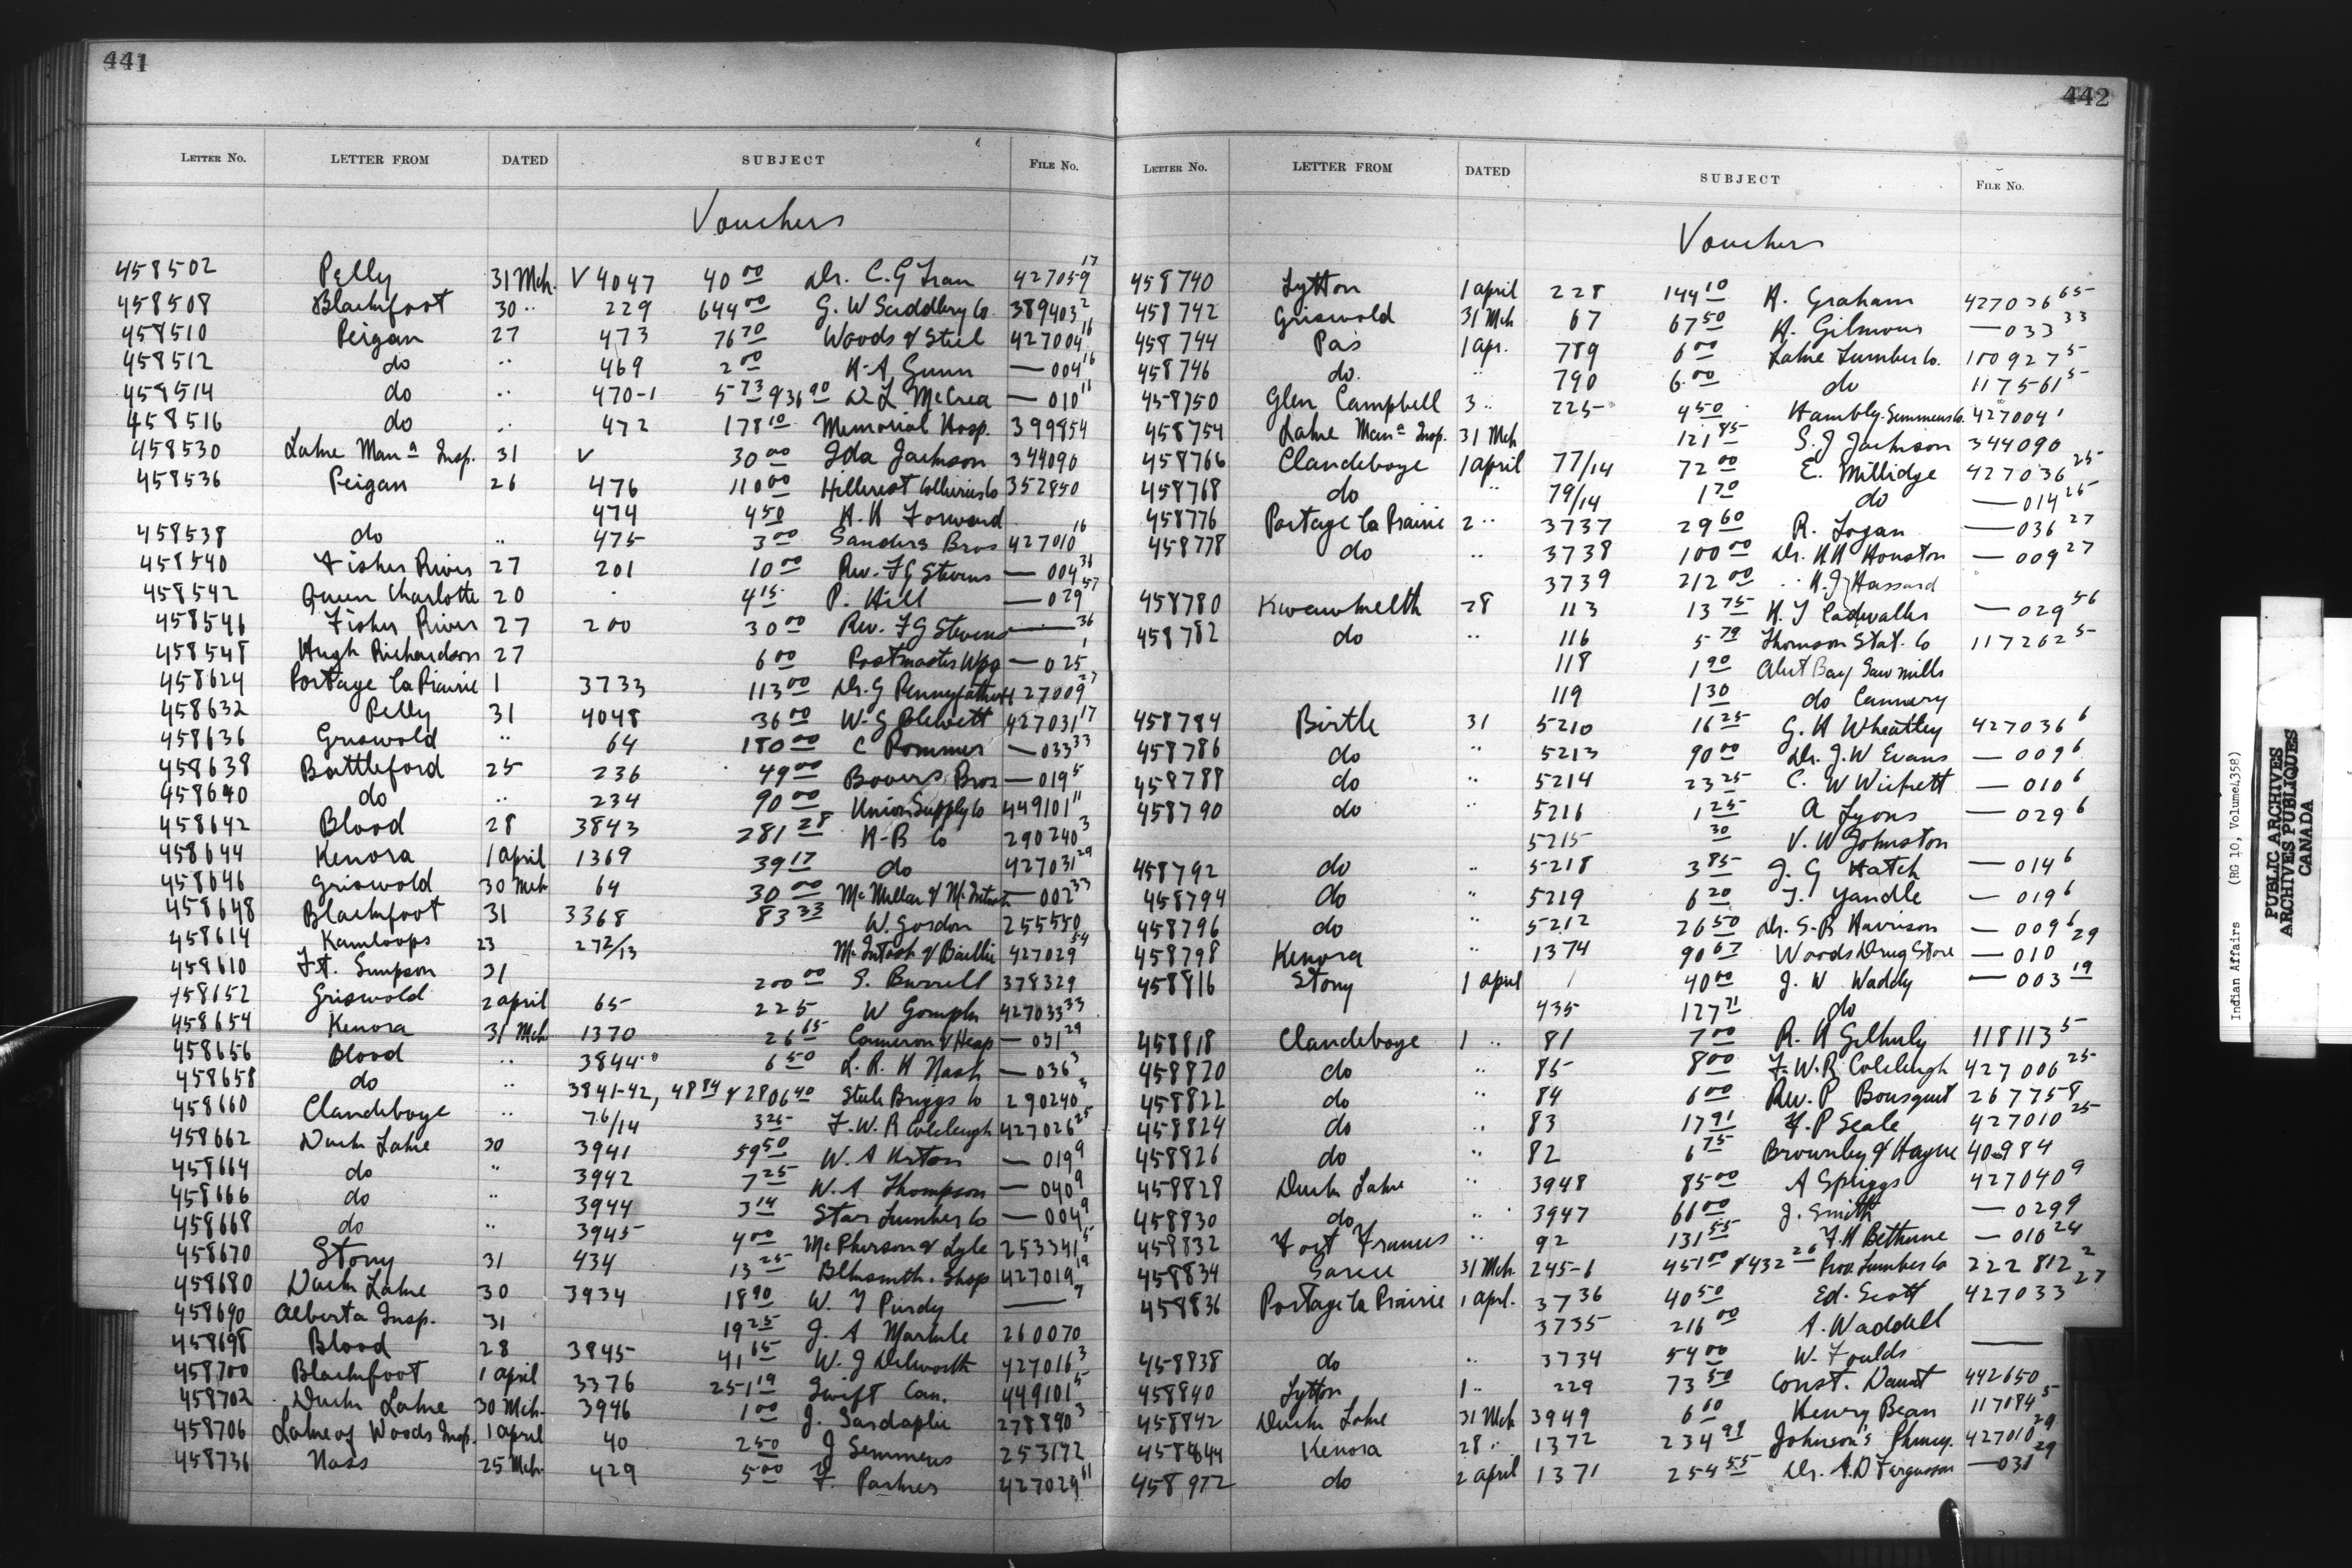 441
LETTER NO. LETTER FROM DATED SUBJECT FILE No.
Vouchers
458502 Pelly 31 Mch. V 4047 40 00 Dr. C. G 427059 17
458508 Blackfoot 30 " 229 644 00 G. W Saddlery Co 389403 2
458510 Peigan 27 473 76 70 Woods & Steel 427004 16
458512 do " 469 2 00 H. A Gunn — 004 16
458514 do " 470-1 5 73 & 36 90 D L McCrea — 010 11
458516 do " 472 178 10 Memorial Hosp. 399854
458530 Lake Man a Insp. 31 V 30 00 Ida Jackson 344090
458536 Peigan 26 476 110 00 Hillcrest Collieries Co 352850
474 4 50 H. H Forward
458538 do " 475 3 00 Sanders Bros 427010 16
458540 Fisher River 27 201 10 00 Rev. F G Stevens — 004 36
458542 Queen Charlotte 20 4 15 P. Hill — 029 57
458546 Fisher River 27 200 30 00 Rev. F G Stevens — 36
458548 Hugh Richardson 27 6 00 Postmaster Wpg — 025 1
458624 Portage la Prairie 1 3733 113 00 Dr. G Pennyfather 427009 27
458632 Pelly 31 4048 36 00 W. G Blewett 427031 17
458636 Griswold " 64 180 00 C Pommer — 033 33
458638 Battleford 25 236 49 00 Bowers Bros — 019 5
458640 do " 234 90 00 Union Supply Co 449101 11
458642 Blood 28 3843 281 28 H-B Co 290240 3
458644 Kenora 1 april 1369 39 17 do 427031 29
458646 Griswold 30 Mch 64 30 00 McMillan & McIntosh — 002 33
458648 Blackfoot 31 3368 83 33 W. Gordon 255550
458614 Kamloops 23 272/13 McIntosh & Baillie 427029 54
458610 Ft. Simpson 31 200 00 S. Burrell 378329
458652 Griswold 2 april 65 225 W 427033 33
458654 Kenora 31 Mch 1370 26 65 Cameron & Heap — 031 29
458656 Blood " 3844 6 50 L. R. H Nash — 036 3
458658 do " 3841-42, 48 84 & 2806 40 Steele Briggs Co 290240 3
458660 Clandeboye " 76/14 3 25 F. W. R Colcleugh 427026 25
458662 Duck Lake 30 3941 59 50 W. A — 019 9
458664 do " 3942 7 25 W. A Thompson — 040 9
458666 do " 3944 3 14 Star Lumber Co — 004 9
458668 do " 3945 4 00 McPherson & Lyle 253341 5
458670 Stony 31 434 13 25 Blksmith. Shop 427019 19
458680 Duck Lake 30 3934 18 90 W. J Purdy — 9
458690 Alberta Insp. 31 19 25 J. A Markle 260070
458698 Blood 28 3845 41 65 W. J Dilworth 427016 3
458700 Blackfoot 1 april 3376 251 19 Swift Can. 449101 5
458702 Duck Lake 30 Mch. 3946 1 00 J. 278890 3
458706 Lake of Woods Insp. 1 april 40 2 50 J Semmens 253172
458736 Nass 25 Mch. 429 5 00 F. Parkes 427029 61
442
LETTER NO. LETTER FROM DATED SUBJECT FILE No.
Vouchers
458740 Lytton 1 april 228 144 10 H. Graham 427036 65
458742 Griswold 31 Mch 67 67 50 H. Gilmour — 033 33
458744 Pas 1 apr. 789 6 00 Lake Lumber Co. 100927 5
458746 do. " 790 6 00 do 117561 5
458750 Glen Campbell 3 " 225 4 50 Hambly. Semmens Co. 427004 1
458754 Lake Man a Insp. 31 Mch 121 85 S. J Jackson 344090
458766 Clandeboye 1 april 77/14 72 00 E. Millidge 427036 25
458768 do " 79/14 1 70 do — 014 25
458776 Portage la Prairie 2 " 3737 29 60 R. Logan — 036 27
458778 do " 3738 100 00 Dr. H H Houston — 009 27
3739 212 00 " H. J Hassard
458780 Kwawkwelth 28 113 13 75 H. J Cadwallader — 029 56
458782 do " 116 5 79 Thomson Stat. Co 117262 5
118 1 90 Alert Bay Saw mills
119 1 30 do Cannery
458784 Birtle 31 5210 16 25 G. H Wheatley 427036 6
458786 do " 5213 90 00 Dr. J. W Evans — 009 6
458788 do " 5214 23 25 C. W Wickett — 010 6
458790 do " 5216 1 25 A Lyons — 029 6
5215 30 V. W Johnston
458792 do " 5218 3 85 J. G Hatch — 014 6
458794 do " 5219 6 20 T. Yandle — 019 6
458796 do " 5212 26 50 Dr. S. B Harrison — 009 6
458798 Kenora " 1374 90 67 Woods Drug Store — 010 29
458816 Stony 1 april 1 40 00 J. W Waddy — 003 19
435 127 71 do
458818 Clandeboye 1 " 81 7 00 R. H Gilhuly 118113 5
458820 do " 85 8 00 F. W. R Colcleugh 427006 25
458822 do " 84 6 00 Rev. P Bousquet 267758
458824 do " 83 17 91 H. P Seale 427010 25
458826 do " 82 6 75 Brownley & Hayne 40984
458828 Duck Lake " 3948 85 00 A Spriggs 427040 9
458830 do " 3947 66 00 J. Smith — 029 9
458832 Fort Frances " 92 131 55 F. H Bethune — 010 24
458834 Sarcee 31 Mch. 245-6 451 00 & 432 26 Pro. Lumber Co 222812 2
458836 Portage la Prairie 1 april. 3736 40 50 Ed. Scott 427033 27
3735 216 00 A. Waddell
458838 do " 3734 54 00 W. Foulds —
458840 Lytton 1 " 229 73 50 Const. Daunt 442650
458842 Duck Lake 31 Mch 3949 6 00 Henry Bean 117084 5
458844 Kenora 28 " 1372 234 98 Johnson's Phmcy. 427010 29
458972 do 2 april 1371 254 55 Dr. A. D Fergusson — 031 29
Indian Affairs (RG 10, Volume 4358)
PUBLIC ARCHIVES
ARCHIVES PUBLIQUES
CANADA